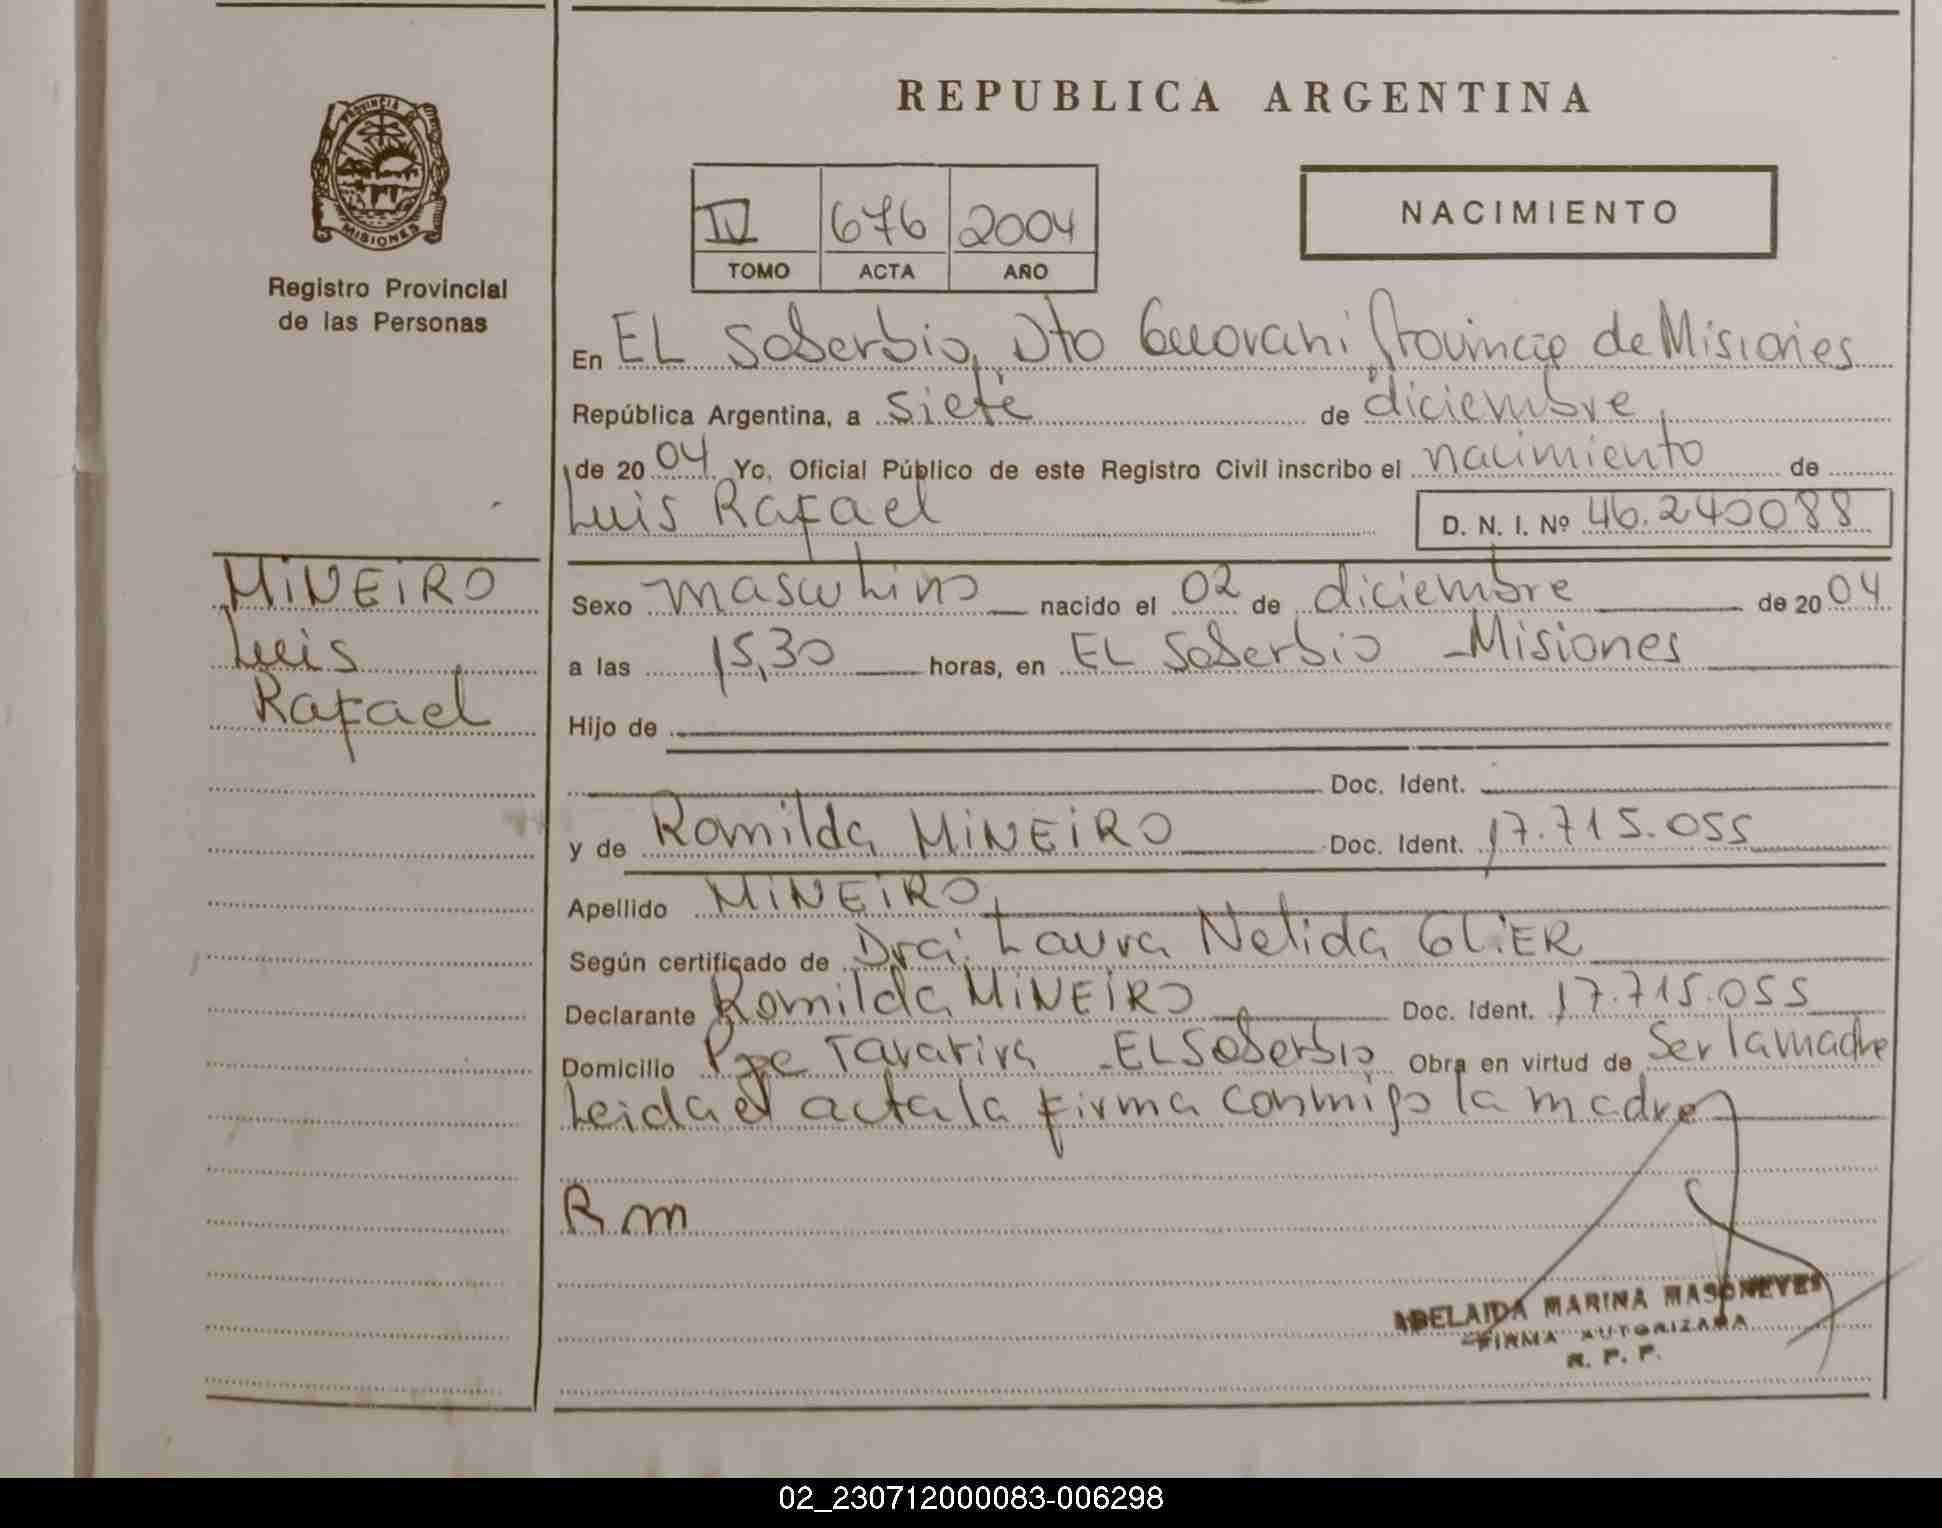 REPUBLICA ARGENTINA
PROVINCIA
MISIONES
Registro Provincial
de las Personas
IV 676 2004
TOMO ACTA AÑO
NACIMIENTO
En EL Soberbio, Dto Guarani Provincia de Misiones
República Argentina, a siete de diciembre
de 2004 Yo, Oficial Público de este Registro Civil inscribo el nacimiento de
Luis Rafael D. N. I. Nº 46.240088
MiNEiRO
Luis
Rafael
Sexo masculino nacido el 02 de diciembre de 2004
a las 15,30 horas, en EL Soberbio - Misiones
Hijo de
Doc. Ident.
y de Romilda MiNEiRO Doc. Ident. 17.715.055
Apellido MiNEiRO
Según certificado de Dra: Laura Nelida GLiER
Declarante Romilda MiNEiRO Doc. Ident. 17.715.055
Domicilio Pje Tararira - EL Soberbio Obra en virtud de Ser la madre
Leida el acta la firma conmigo la madre
R m
ADELAIDA MARINA MASONEVES
FIRMA AUTORIZADA
R. P. P.
02_230712000083-006298